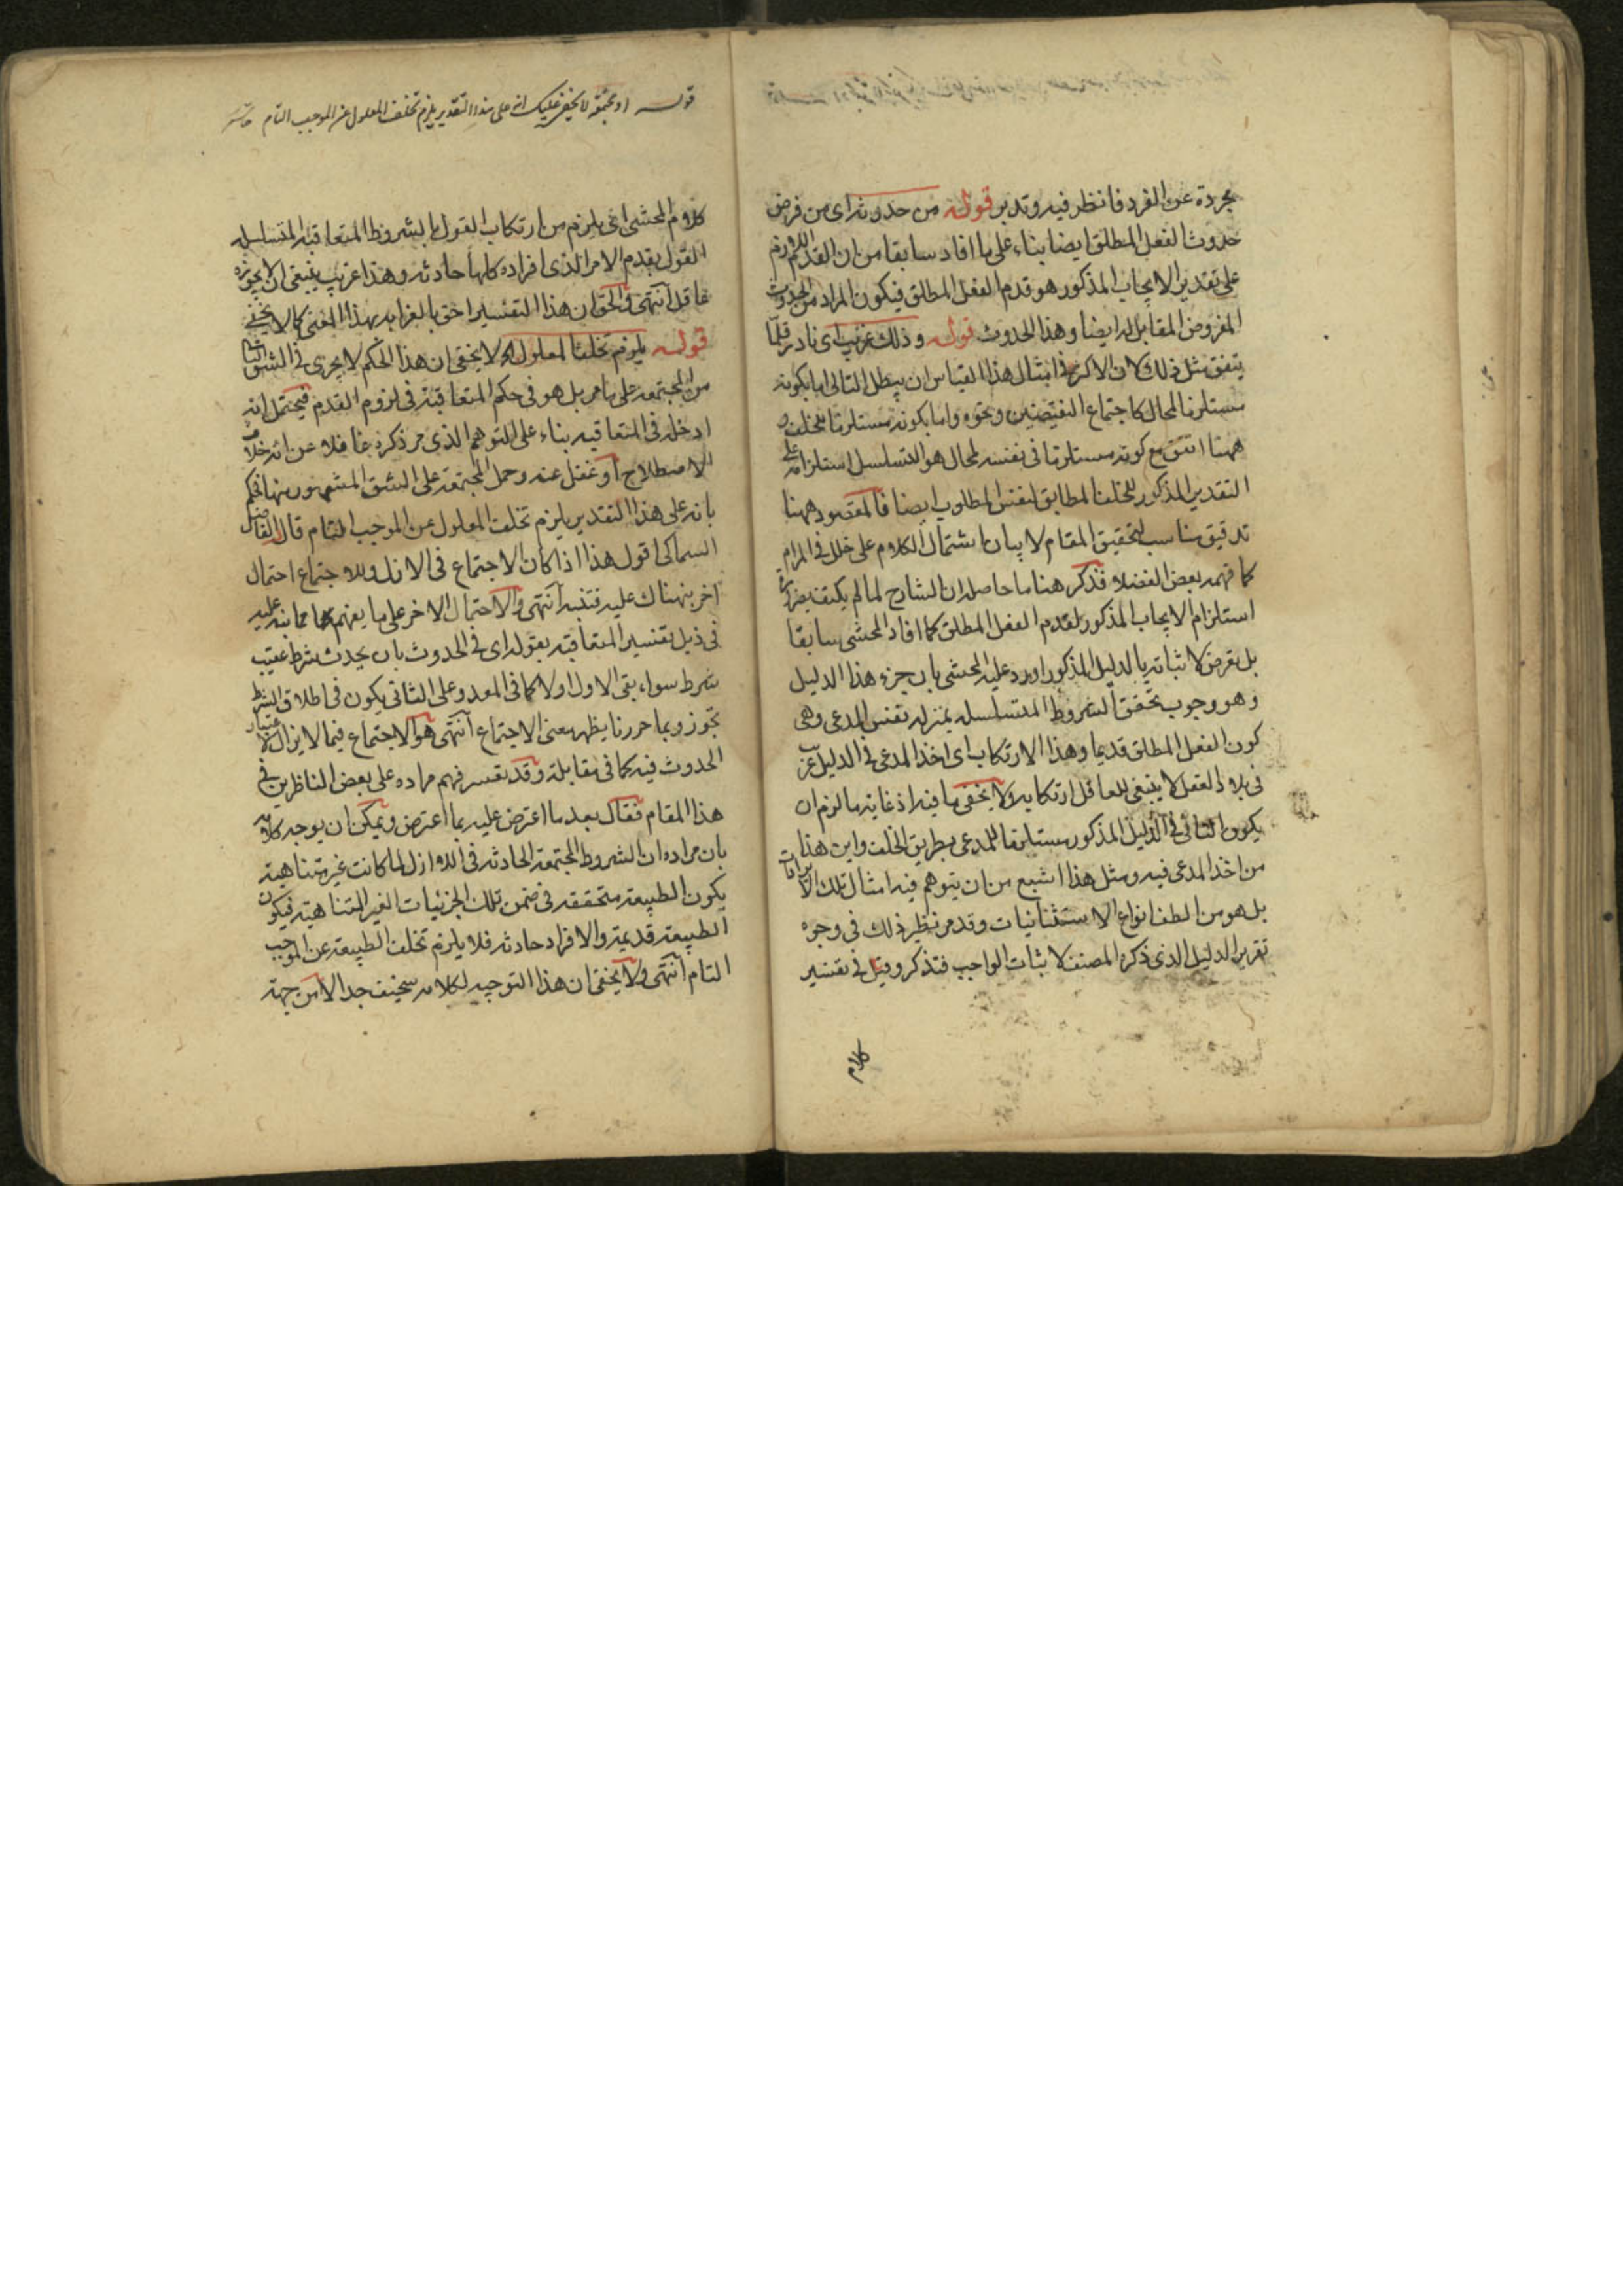 مجردة عن الفرد فانظر فيه وتدبر قوله من حدوثه اى من فرض
حدوث الفعل المطلق ايضا بناء على ما افاد سابقا من ان القدم اللازم
على تقدير الايجاب المذكور هو قدم الفعل المطلق فيكون المراد من الحدوث
المفروض المقابل له ايضا هذا الحدوث قوله وذلك غريب اى نادر قلما
يتفق مثل ذلك لان الاكثر فى امثال هذا القياس ان يبطل التالى اما بكونه
مستلزما لمحال كاجتماع النقيضين ونحوه واما بكونه مستلزما للخلف و
ههنا اتفق مع كونه مستلزما فى نفسه لمحال هو التسلسل استلزامه على
التقدير المذكور للخلف المطابق لنفس المطلوب ايضا فالمقصود ههنا
تدقيق مناسب لتحقيق المقام لا بيان اشتمال الكلام على خلل فى المرام
كما فهمه بعض الفضلاء فذكر هنا ما حاصله ان الشارح لما لم يكتف
استلزام الايجاب المذكور لقدم الفعل المطلق كما افاد المحشى سابقا
بل تعرض لاثباته بالدليل المذكور اورد عليه المحشى بان جزء هذا الدليل
وهو وجوب تحقق الشروط المتسلسلة بمنزلة نفس المدعى وهى
كون الفعل المطلق قديما وهذا الارتكاب اى اخذ المدعى فى الدليل
فى بلاد العقل لا ينبغى للعاقل ارتكابه ولا يخفى ما فيه اذ غاية ما لزم ان
يكون التالى فى الدليل المذكور مستلزما للمدعى بطريق الخلف واين هذا
من اخذ المدعى فيه ومثل هذا اشيع من ان يتوهم فيه امثال تلك
بل هو من الطف انواع الاستثنائيات وقد مر نظير ذلك فى وجوه
تقرير الدليل الذى ذكره المصنف لاثبات الواجب فتذكر وقيل فى تفسير
كلام
قوله او مجتمعة لا يخفى عليك انه على هذا التقدير يلزم تخلف المعلول عن الموجب التام
كلام المحشى انه يلزم من ارتكاب القول بالشروط المتعاقبة المتسلسلة
القول بقدم الامر الذى افراده كلها حادثة وهذا غريب ينبغى ان لا يجوزه
عاقل انتهى والحق ان هذا التفسير احق بالغرابة بهذا المعنى كما لا يخفى
قوله يلزم تخلف المعلول الخ لا يخفى ان هذا الحكم لا يجرى فى الشق الثانى
من المجتمعة على ما مر بل هو فى حكم المتعاقبة فى لزوم القدم فيحتمل انه
ادخله فى المتعاقبة بناء على التوهم الذى مر ذكره غافلا عن انه خلاف
الاصطلاح او غفل عنه وحمل المجتمعة على الشق المشهور منها فحكم
بانه على هذا التقدير يلزم تخلف المعلول عن الموجب التام قال الفاضل
السماكى اقول هذا اذا كان الاجتماع فى الازل وللاجتماع احتمال
اخر نبهناك عليه فتنبه انتهى والاحتمال الاخر على ما يفهم مما نبه عليه
فى ذيل تفسير المتعاقبة بقوله اى فى الحدوث بان يحدث شرط عقيب
شرط سواء بقى الاول او لا كما فى المعد وعلى الثانى يكون فى اطلاق الشرط
تجوز وبما حررنا يظهر معنى الاجتماع انتهى هو الاجتماع فيما لا يزال
الحدوث فيه كما فى مقابلة وقد تعسر فهم مراده على بعض الناظرين فى
هذا المقام فقال بعد ما اعترض عليه بما اعترض ويمكن ان يوجه كلامه
بان مراده ان الشروط المجتمعة الحادثة فى اللاازل لما كانت غير متناهية
يكون الطبيعة متحققة فى ضمن تلك الجزئيات الغير المتناهية فيكون
الطبيعة قديمة والافراد حادثة فلا يلزم تخلف الطبيعة عن الموجب
التام انتهى ولا يخفى ان هذا التوجيه لكلامه سخيف جدا لا من جهة